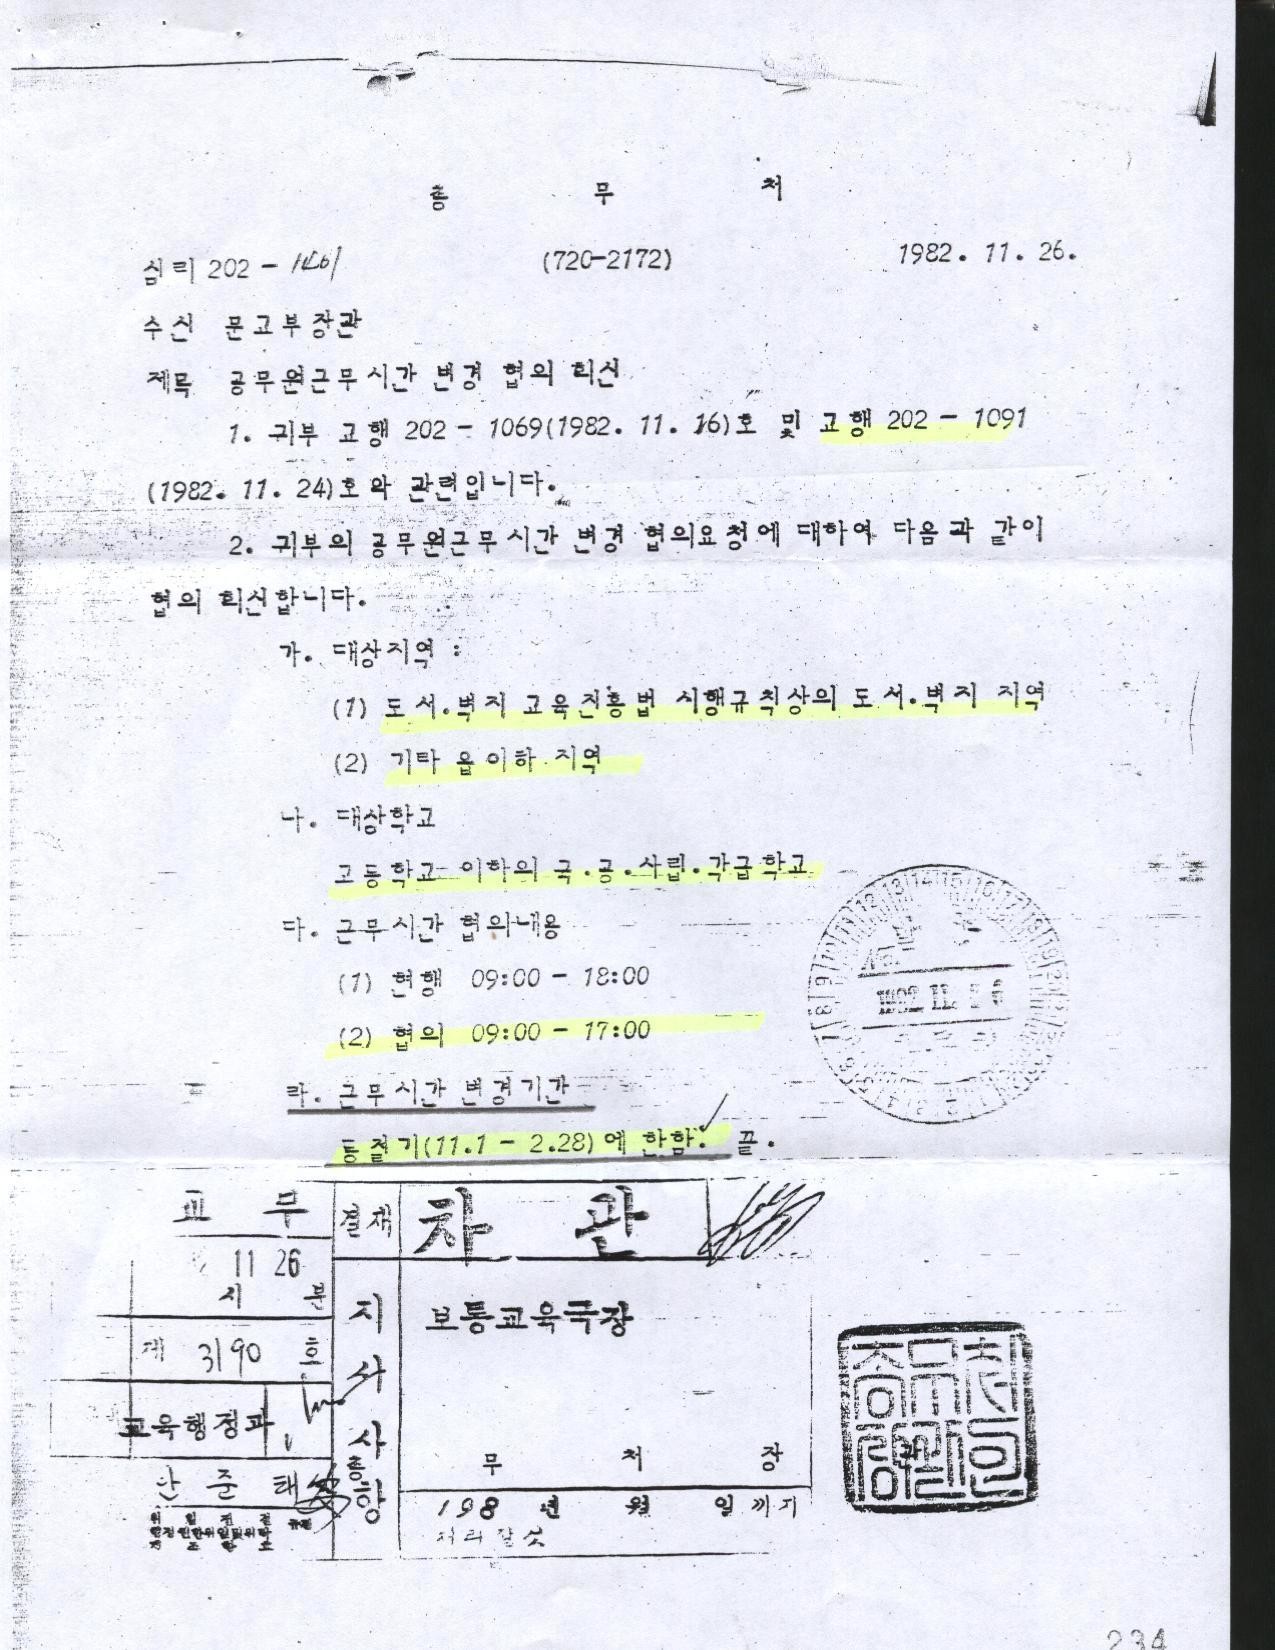 총 무 처
심리 202 -
(720-2172)
1982. 11. 26.
수신 문교부장관
제목 공무원근무시간 변경 협의 회신
1. 귀부 교행 202 - 1069(1982. 11. 16)호 및 교행 202 - 1091
(1982. 11. 24)호와 관련입니다.
2. 귀부의 공무원근무시간 변경 협의요청에 대하여 다음과 같이
협의 회신합니다.
가. 대상지역 :
(1) 도서.벽지 교육진흥법 시행규칙상의 도서.벽지 지역
(2) 기타 읍이하 지역
나. 대상학교
고등학교 이하의 국.공.사립.각급학교
다. 근무시간 협의내용
(1) 현행 09:00 - 18:00
(2) 협의 09:00 - 17:00
라. 근무시간 변경기간
동절기(11.1 - 2.28)에 한함. 끝.
교 무
11 26
시 분
제 3190 호
교육행정과
준 태
결재
차 관
지시사항
보통교육국장
총 무 처 장
198 년 월 일까지
처리할 것
총무처장관의인
234